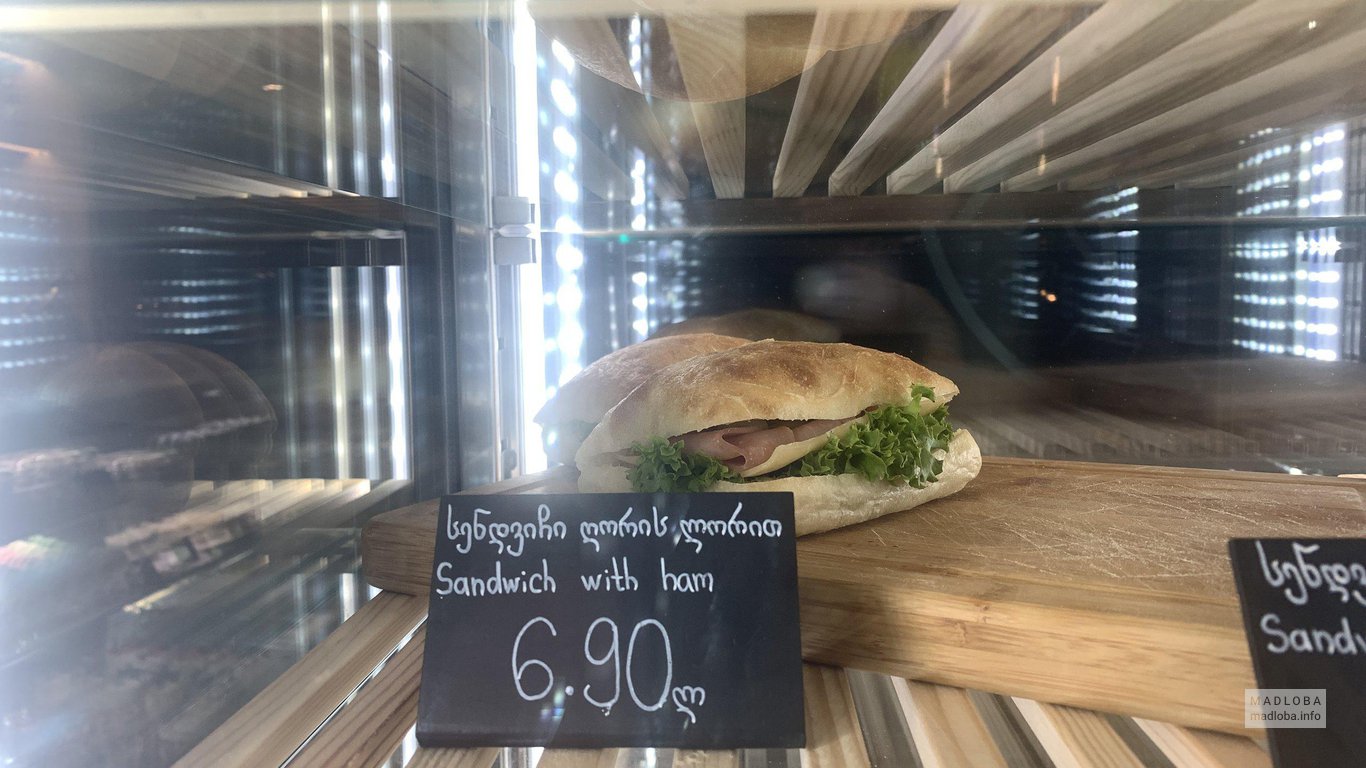 სენდვიჩი ღორის ლორით
Sandwich with ham
6.90ლ
სენდვ
Sandw
MADLOBA
madloba.info